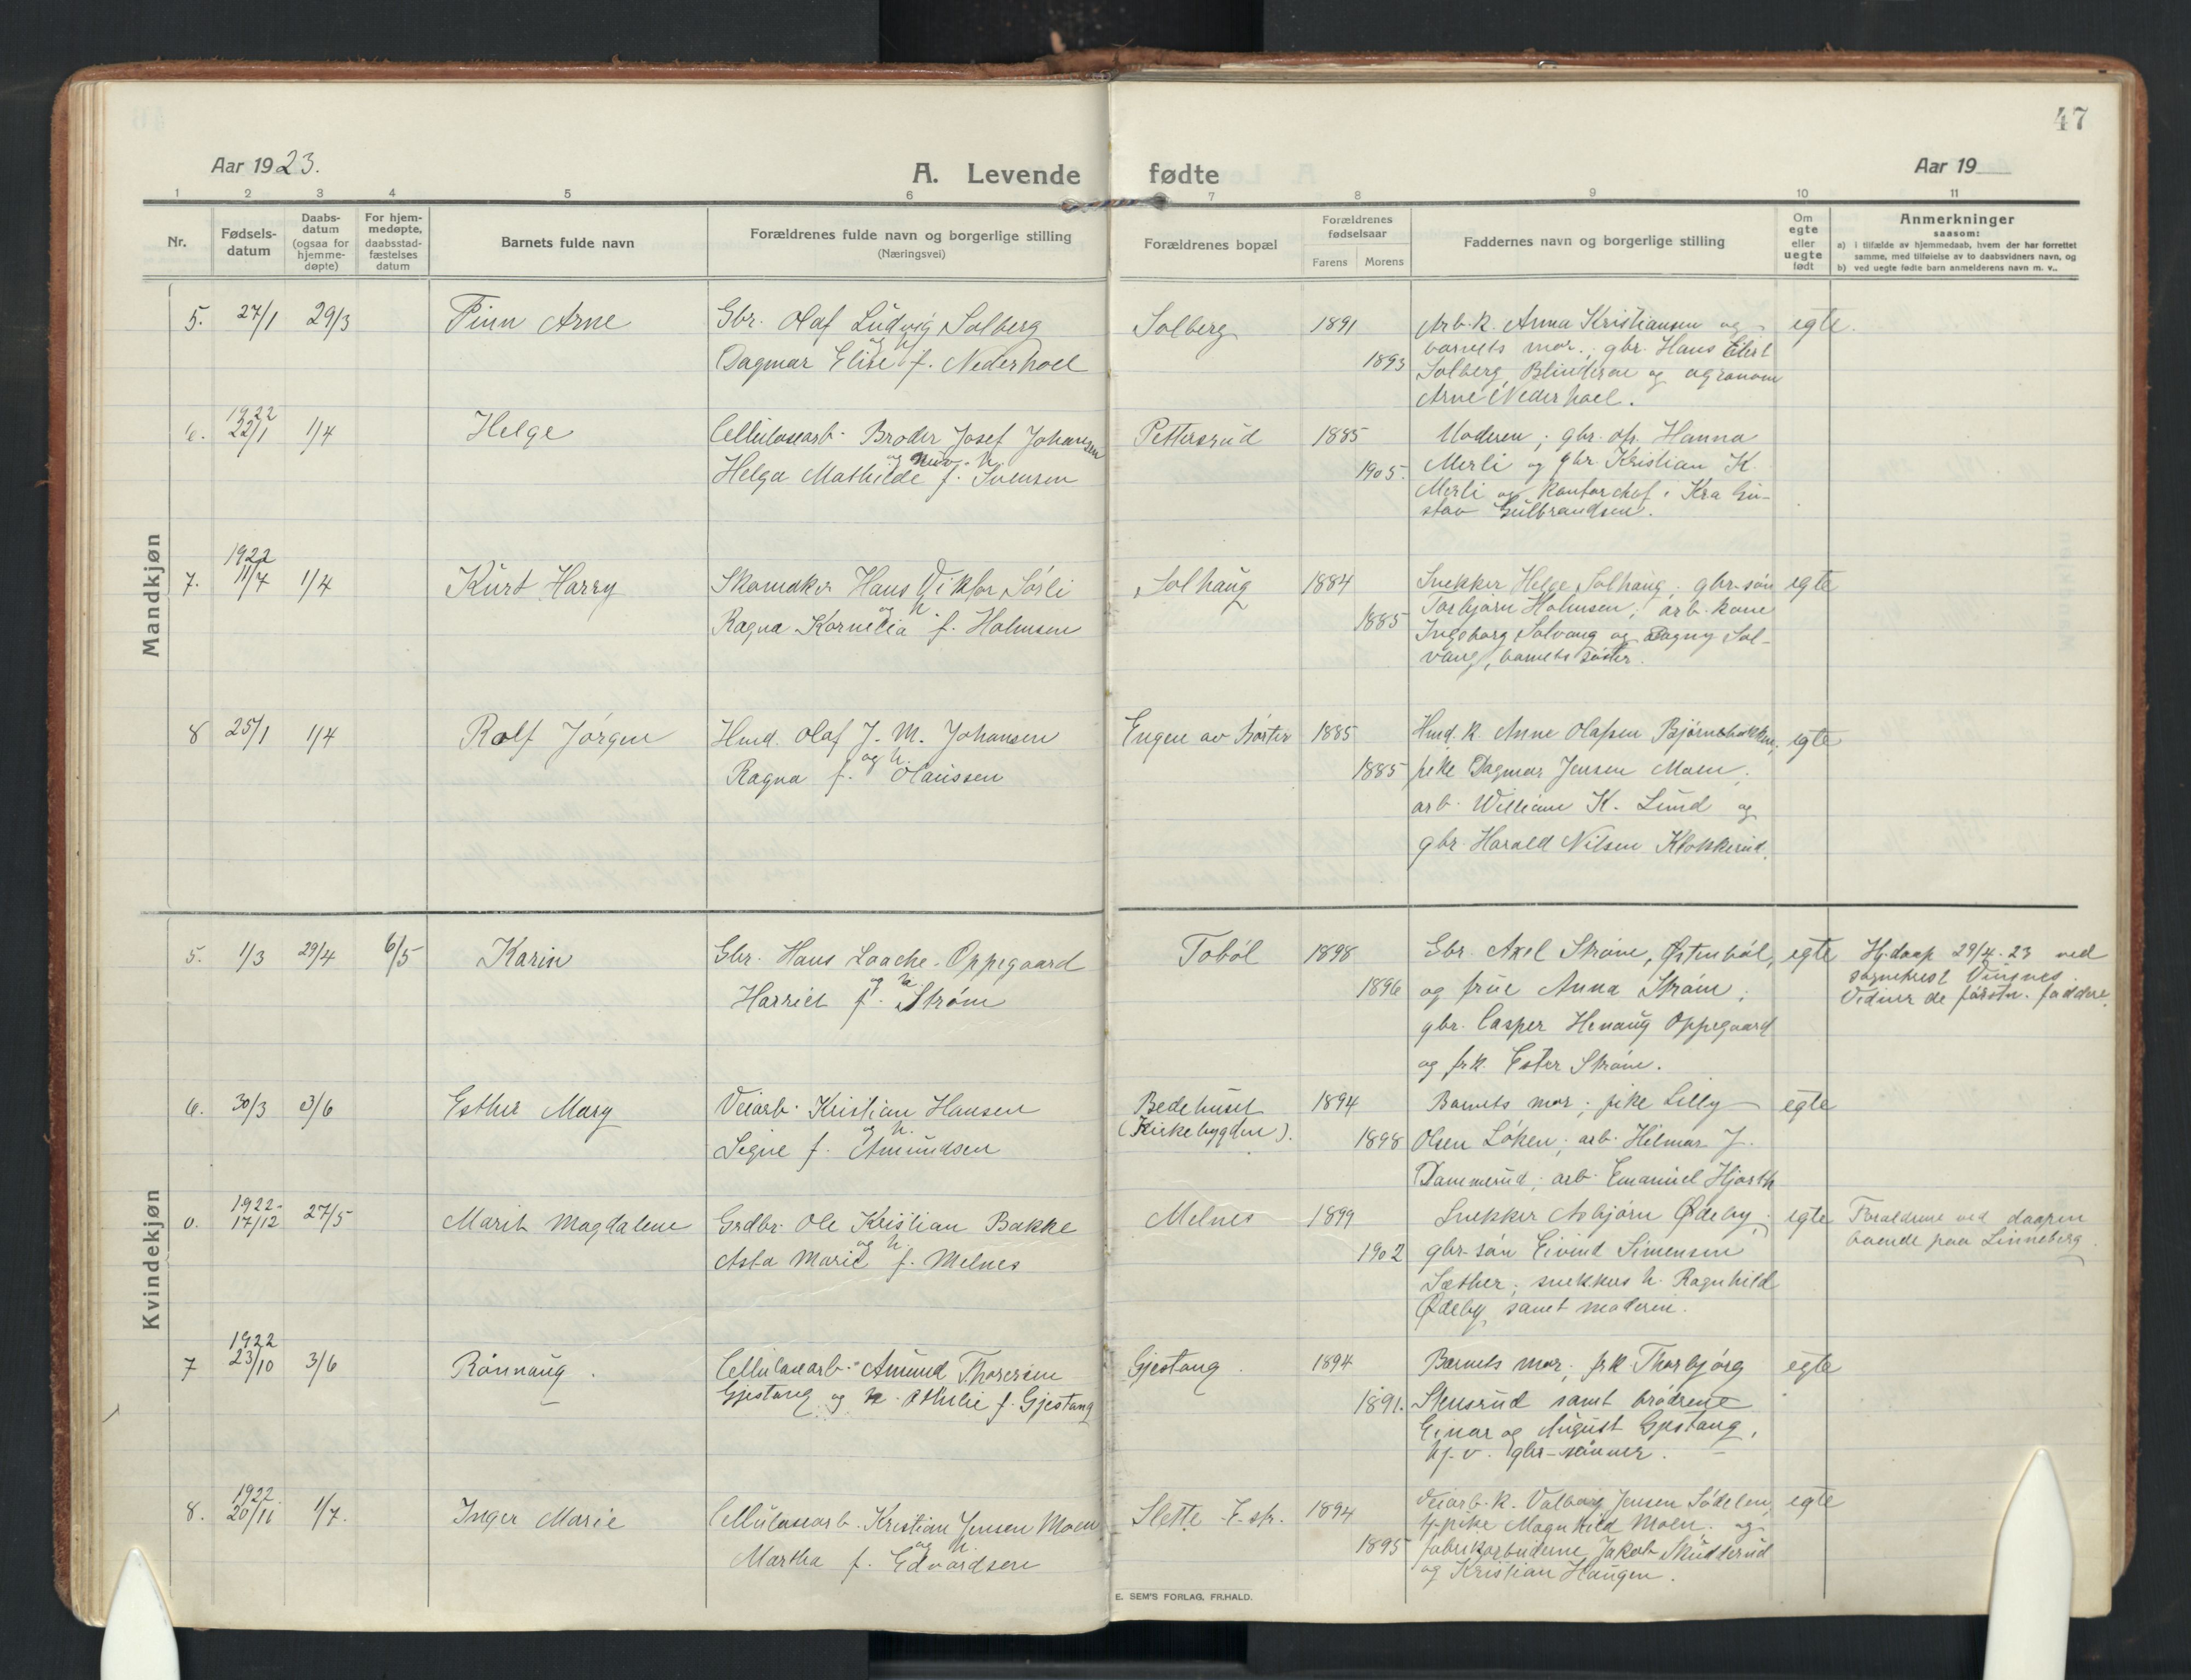 47
Aar 1923.
A. Levende fødte
Aar 19
1 2 3 4 5 6 7 8 9 10 11
Nr.
Fødsels-
datum
Daabs-
datum
(ogsaa for
hjemme-
døpte)
For hjem-
medøpte,
daabsstad-
fæstelses
datum
Barnets fulde navn
Forældrenes fulde navn og borgerlige stilling
(Næringsvei)
Forældrenes bopæl
Forældrenes
fødselsaar
Farens Morens
Faddernes navn og borgerlige stilling
Om
egte
eller
uegte
født
Anmerkninger
saasom:
a) i tilfælde av hjemmedaab, hvem der har forrettet
samme, med tilføielse av to daabsvidners navn, og
b) ved uegte fødte barn anmelderens navn m. v..
Mandkjøn
5. 27/1 29/3 Finn Arne
Gbr. Olaf Ludvig Solberg
og h.
Dagmar Elise f. Nederhoel
Solberg 1891
1893
Arb.k. Anna Kristiansen og
barnets mor; gbr. Hans Elist
Solberg, Blindern og agronom
Arne Nederhoel.
egte.
6. 1922
22/1 1/4 Helge
Cellulosearb. Broder Josef Johansen
og h.
Helga Mathilde f. Svensen
Pettersrud 1885
1905.
Moderen; gbr. dtr. Hanna
Merli og gbr. Kristian K.
Merli og kontorchef i Kra Gu-
stav Gulbrandsen.
7. 1922
11/7 1/4 Kurt Harry
Skomaker Hans Viktor Sørli
og h.
Ragna Kornelia f. Holmsen
Solhaug 1884
1885
Snekker Helge Solhaug; gbr-søn
Torbjørn Holmsen; arb. kone
Ingeborg Solvang og Dagny Sol-
vang, barnets søster.
egte
8 25/1 1/4 Rolf Jørgen
Hmd. Olaf J. M. Johansen
og h.
Ragna f. Olaussen
Engen av Børter 1885
1885
Hmd. k. Anne Olafsen Bjørnebakken;
pike Dagmar Jensen Moen;
arb. William K. Lund og
gbr. Harald Nilsen Klokkerud.
egte
Kvindekjøn
5. 1/3 29/4 6/5 Karin
Gbr. Hans Laache-Oppegaard
og h.
Harriet f. Strøm
Tobøl 1898
1896
Gbr. Axel Strøm, Østenbøl,
og frue Anna Strøm;
gbr. Casper Henaug Oppegaard
og frk. Ester Strøm.
egte
Hj.daap 29/4.23 ved
sogneprest Vinsnes.
Vidner de førstn. faddere.
6. 30/3 3/6 Esther Mary
Veiarb. Kristian Hansen
og h.
Signe f. Amundsen
Bedehuset
(Kirkebygden).
1894
1898
Barnets mor; pike Lilly
Olsen Løken; arb. Hilmar J.
Dammerud; arb. Emanuel Hjorth
egte
0. 1922-
17/12 27/5 Marit Magdalene
Grdbr. Ole Kristian Bakke
og h.
Asta Marie f. Melnes
Melnes 1899
1902
Snekker Asbjørn Ødeby;
gbr-søn Eivind Simensen
Sæther; snekkers h. Ragnhild
Ødeby, samt moderen.
egte
Forældrene ved daapen
boende paa Linneberg.
7 1922
23/10 3/6 Rønnaug.
Cellulosearb. Amund Thoresen
Gjestang og h. Othilie f. Gjestang
Gjestang. 1894
1891.
Barnets mor; frk. Thorbjørg
Stensrud samt brødrene
Einar og August Gjestang,
hj.v. gbr-sønner.
egte
8. 1922.
20/11 1/7. Inger Marie
Cellulosearb. Kristian Jensen Moen
og h.
Martha f. Edvardsen
Slette E. str. 1894
1895
Veiarb.k. Valborg Jensen Sødelen,
tj-pike Magnhild Moen og
fabrikarbeiderne Jakob Skudderud
og Kristian Haugen.
egte
E. SEM'S FORLAG, FR.HALD.